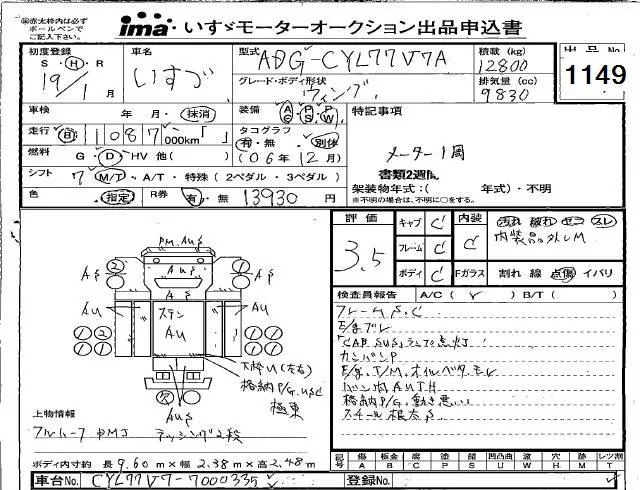 ※赤太枠内は必ず
ボールペンで
ご記入下さい。
ima いすゞモーターオークション出品申込書
初度登録
S・H・R
19/1月
車名
いすゞ
型式
ADG-CYL77V7A
グレード・ボディ形状
ウィング
積載 (kg)
12800
排気量 (cc)
9830
出品No
1149
車検
年 月・抹消
装備
AC PS PW
特記事項
走行
1087 000km「 」
タコグラフ
有・無 別体
(06年12月)
メーター1周
燃料
G・D・HV 他( )
書類2週内
シフト
7 M/T・A/T・特殊(2ペダル・3ペダル)
架装物年式:( 年式)・不明
※不明の場合は、不明に○をする。
色
指定
R券
有・無 13930円
評価
3.5
キャブ C
フレーム C
ボディ C
内装
C
Fガラス
汚れ 破れ セコ スレ
内装品外しM
割れ 線 点傷 イバリ
検査員報告 A/C( ) B/T( )
フレームS.C
E/gブレ
CAB SUSランプ点灯
カンバンP
E/g.T/M.オイルベタモレ
バン内AUTH
格納P/G.動き悪い
スチール根太S
PM.AuS
AuS
AS
Au
ステン
Au
下枠U(左右)
格納P/G.USC
極東
AuS
上物情報
フルハーフ PMJ
ラッシング2段
ボディ内寸約 長9.60m×幅2.38m×高2.48m
記号
傷 板金 腐 塗 錆 凹凸曲 波 穴 跡 レツ割
A B C P S U W H M T
車台No. CYL77V7-7000335
登録No.